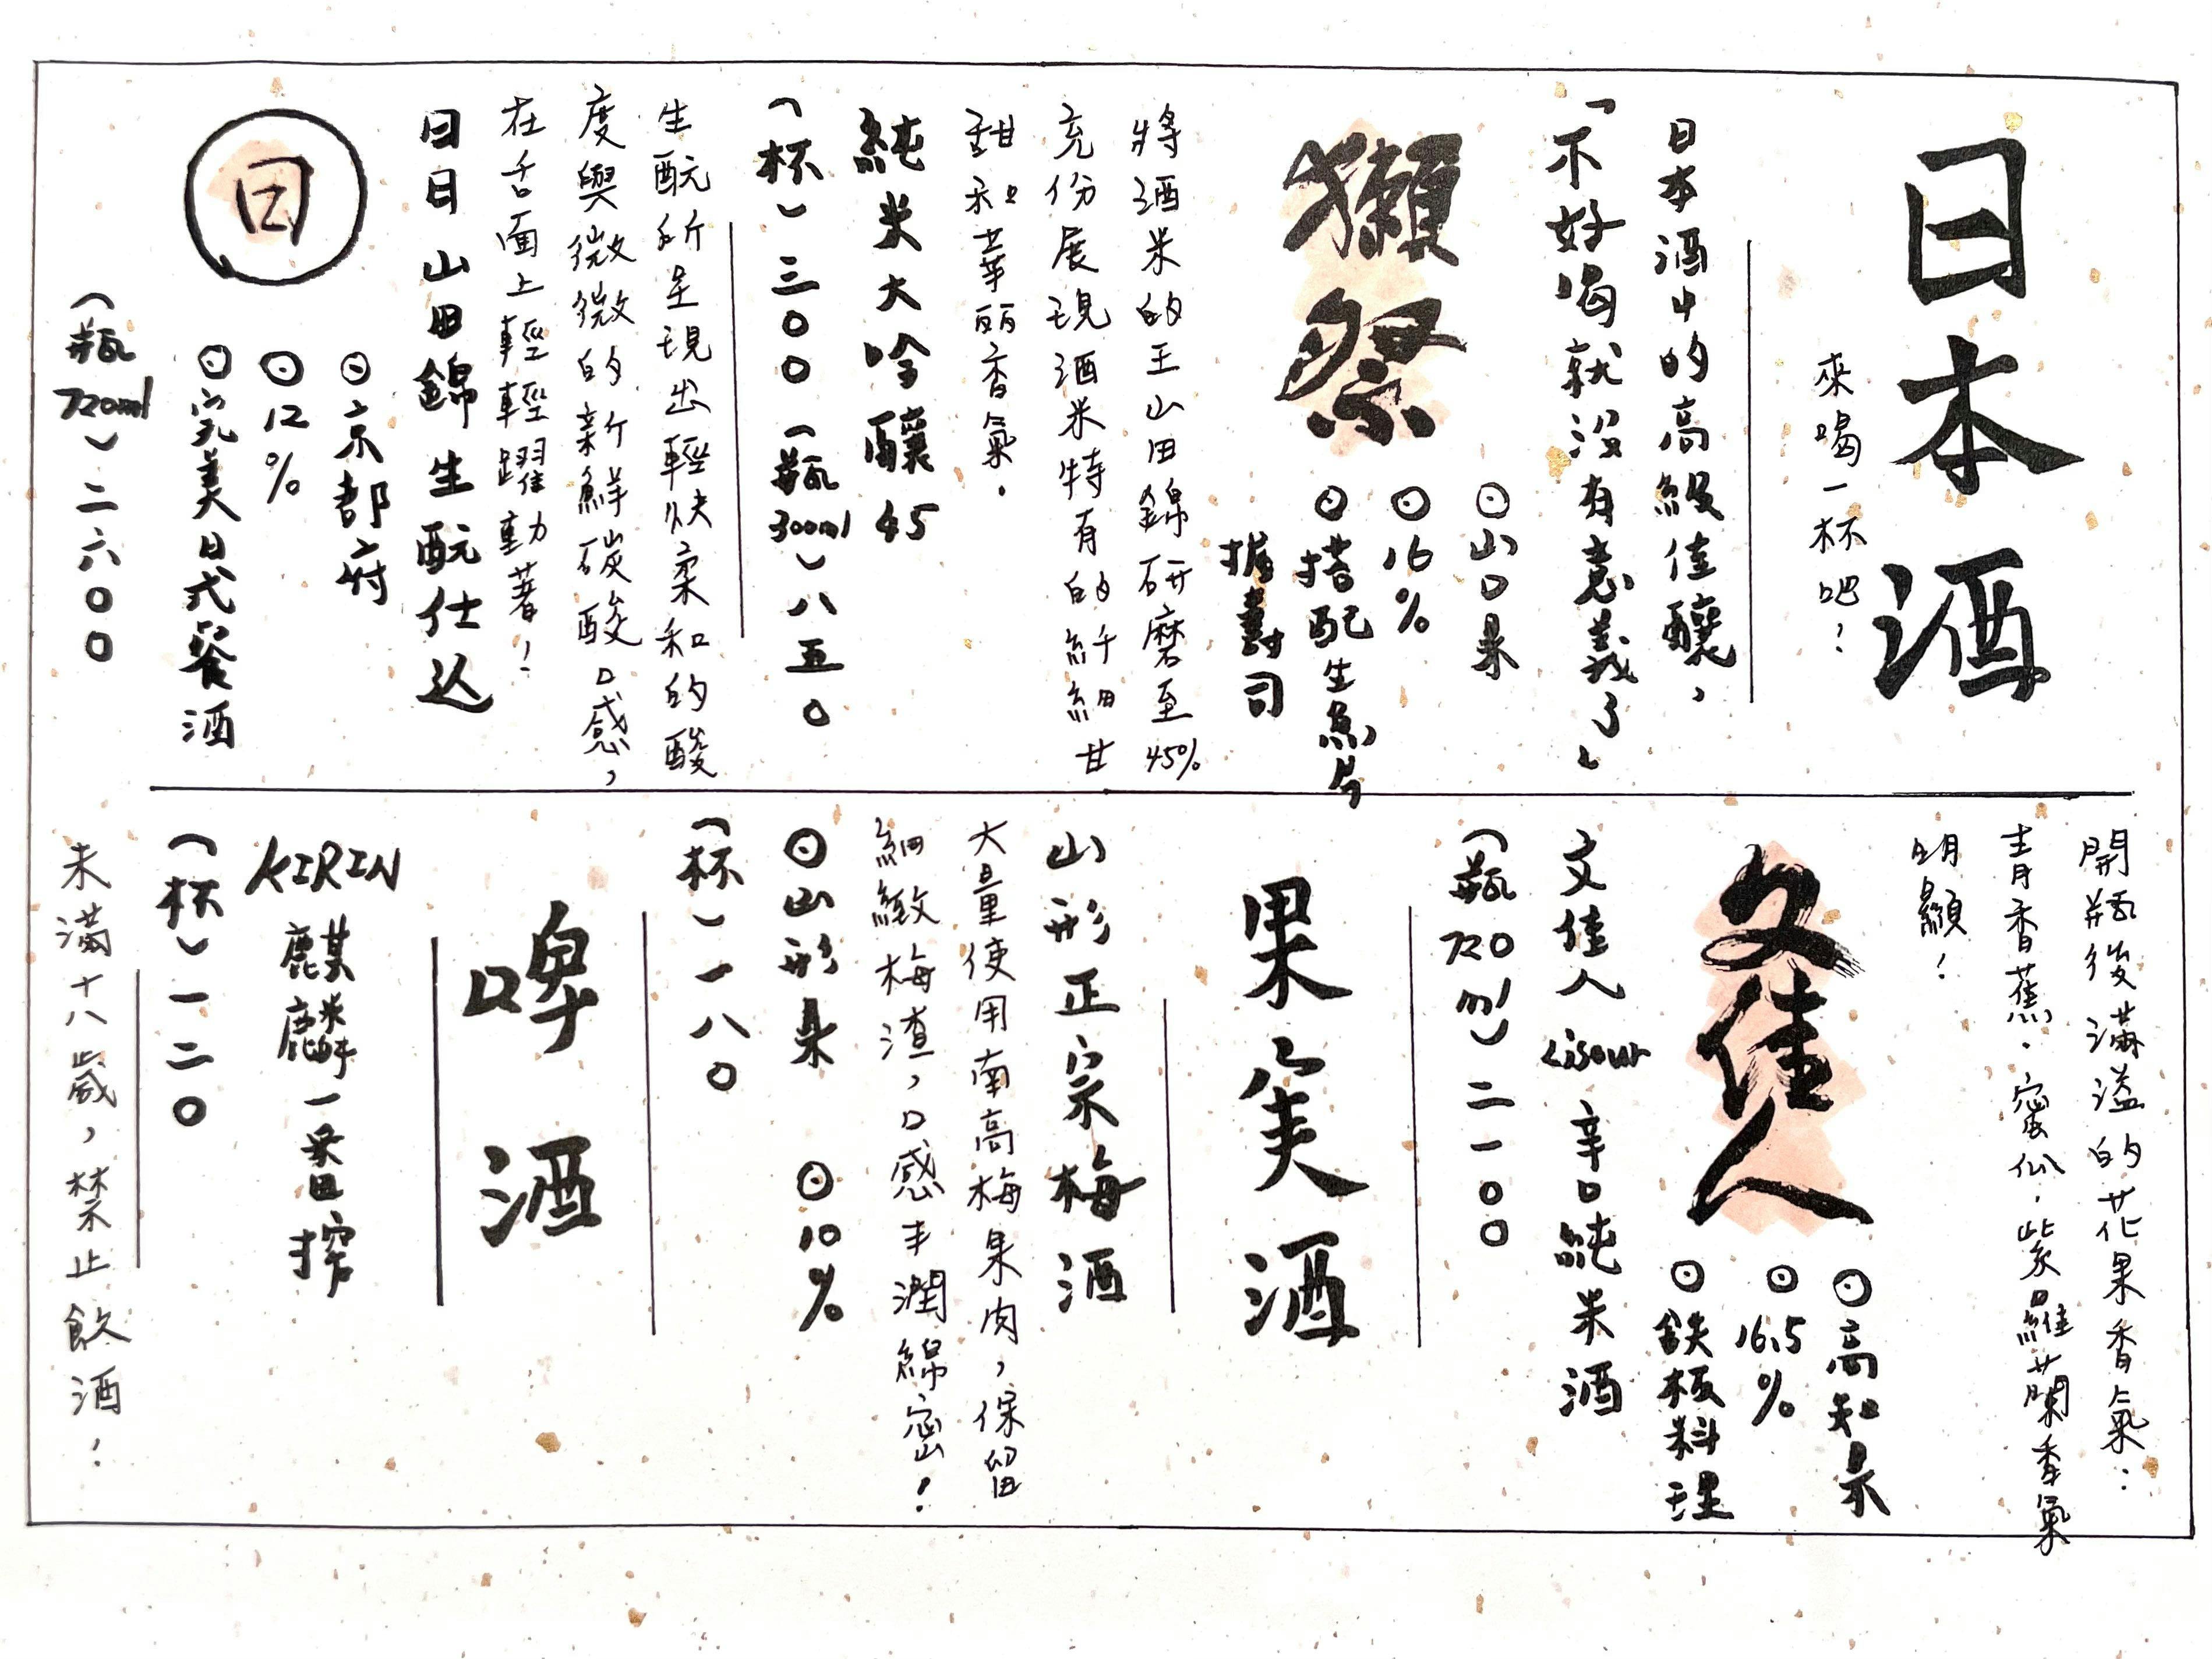 日本酒
來喝一杯吧！
日本酒中的高級佳釀，
「不好喝就沒有意義了」
獺祭
山口県
16%
搭配生魚片
握壽司
將酒米的王山田錦研磨至45%
充份展現酒米特有的纖細甘
甜和華麗香氣。
純米大吟釀45
（杯）三〇〇（瓶300ml）八五〇
生酛所呈現出輕快柔和的酸
度與微微微的新鮮碳酸口感，
在舌面上輕輕躍動著！
日日 山田錦 生酛仕込
日
京都府
12%
完美日式餐酒
（瓶720ml）二六〇〇
開瓶後滿溢的花果香氣：
青香蕉．蜜瓜．紫羅蘭香氣
明顯！
文佳人
高知県
16.5%
鉄板料理
文佳人 Lisour 辛口純米酒
（瓶720ml）二一〇〇
果実酒
山形正宗梅酒
大量使用南高梅果肉，保留
細緻梅渣，口感丰潤綿密！
山形県 10%
（杯）一八〇
啤酒
KIRIN
麒麟一番搾
（杯）一二〇
未滿十八歲，禁止飲酒！